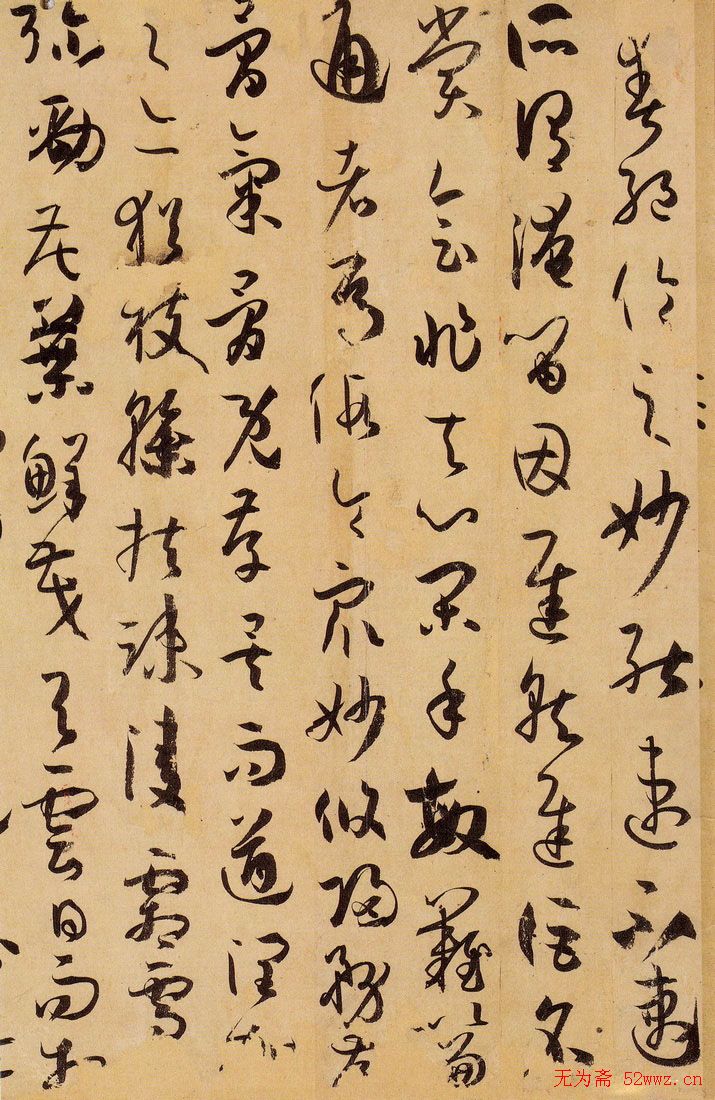 爽絕倫之妙能速不速
所謂淹留因遲就遲詎名
賞會非夫心閑手敏難以兼
通者焉假令衆妙攸歸務存
骨氣骨既存矣而遒潤加
之亦猶枝幹扶疎凌霜雪
彌勁花葉鮮茂與雲日而相
无为斋 52wwz.cn